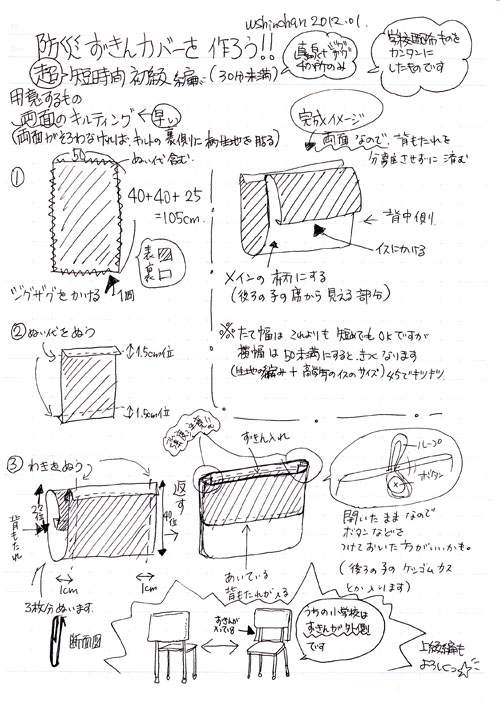 wshinchan 2012.01.
防災ずきんカバーを作ろう!!
超短時間初級編 (30分未満)
直線ぬい
4か所のみ
学校配布ものを
カンタンに
したものです
用意するもの
両面のキルティング ← 早い
(両面がそろわなければ、キルトの裏側に柄生地を貼る)
完成イメージ
両面なので、背もたれを
分離させずに済む
① 50 ぬい代含む
40+40+25
=105cm.
表
裏
ジグザグをかける 1周
背中側
イスにかける
メインの柄にする
(後ろの子の席から見える部分)
② ぬい代をぬう
1.5cm位
1.5cm位
※ たて幅はこれよりも短めでもOKですが
横幅は50未満にするときつくなります
(生地の縮み + 高学年のイスのサイズ) 45でギリギリ
③ わきをぬう
22位
40位
背もたれ
1cm
1cm
3枚分ぬいます
断面図
返す
ずきん入れ
あいている
背もたれが入る
ループ
ボタン
開いたままなので
ボタンなどを
つけておいた方がいいかも。
(後ろの子のケシゴムカス
とか入ります)
ずきんが
入っている
うちの小学校は
ずきんが外側
です
上級編も
よろしこっ☆